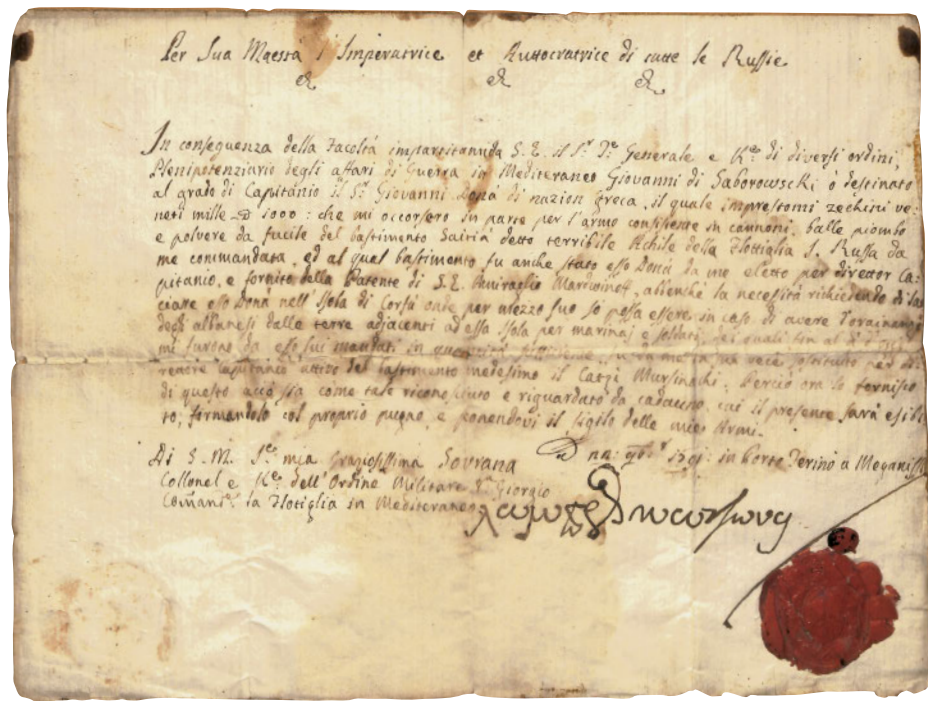 Per Sua Maestá l'Imperatrice et Auttocratrice di tutte le Russie
&c &c &c
In conseguenza della Facoltá impartitami da S. E. il Sr. Te. Generale e Kre. di diversi ordini,
Plenipotenziario degli affari di Guerra in Mediteraneo Giovanni di Saborowscki ó destinato
al grado di Capitánio il Sr. Giovanni Doná di nazion Greca, il quale imprestomi zechini ve-
neti mille 1000: che mi occorsero in parte per l'armo consistente in cannoni, balle piombo
e polvere da fucile del bastimento Saitia detto terribile Achile della Flottiglia I. Russa da
me commandata, ed al qual bastimento fu anche stato esso Doná da me eletto per director Ca-
pitanio, e fornito della Patente di S. E. Amiraglio Mardwinoff, allenché la necessitá richiedendo di las-
ciare esso Doná nell'Isola di Corfú onde per mezzo suo si possa essere in caso di avere
degli albanesi dalle terre adjacenti ad essa Isola per marinaj e soldati, dei quali fin al
mi furono da esso sui mandati in in sua vece sostituto per di-
retore Capitanio attivo del bastimento medesimo il Catzi Mursinachi; Perció ora lo fornisco
di questo acció sia come tale riconosciuto e riguardato da cadauno, cui il presente sará esibi-
to, formandolo col proprio pugno, e ponendovi il sigilo delle mie Armi.
Di S. M. Ia. mia graziosissima Sovrana
in Porto Terino a Meganissi
Collonel e Kre. dell'Ordine Militare Sn. Giorgio
Comānte. la Flotiglia in Mediteraneo